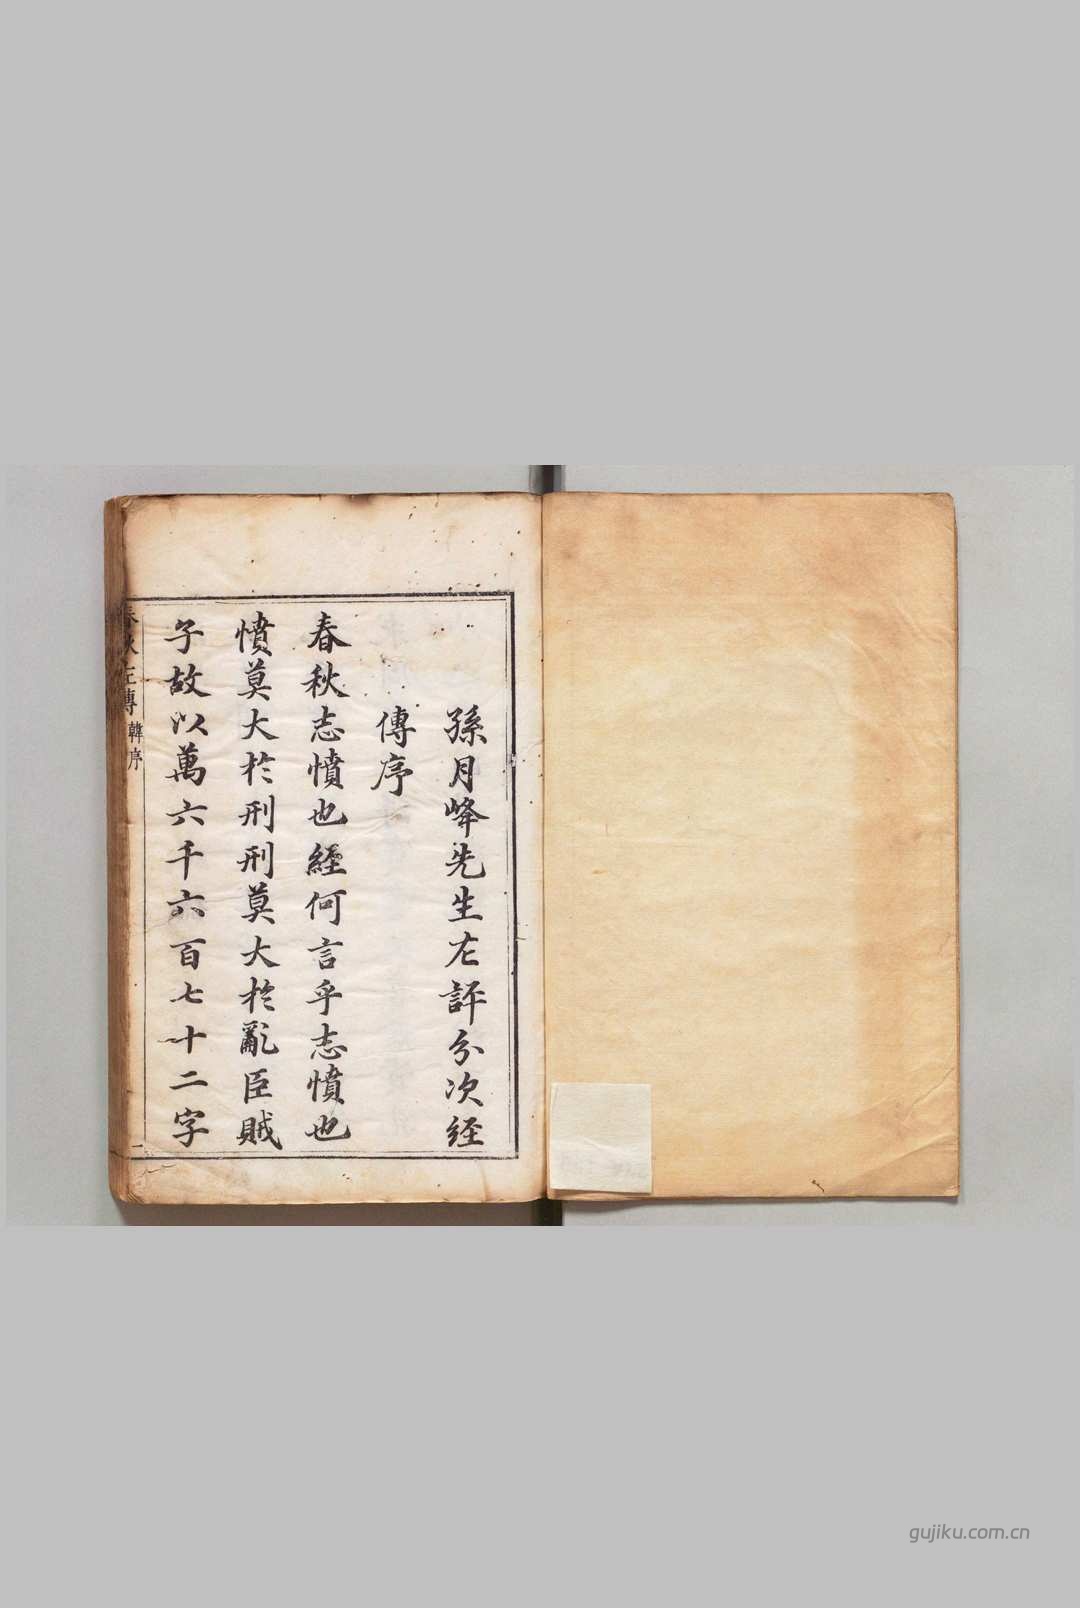 孫月峰先生左評分次經
傳序
春秋志憤也經何言乎志憤也
憤莫大於刑刑莫大於亂臣賊
子故以萬六千六百七十二字
春秋左傳 韓序
一
gujiku.com.cn